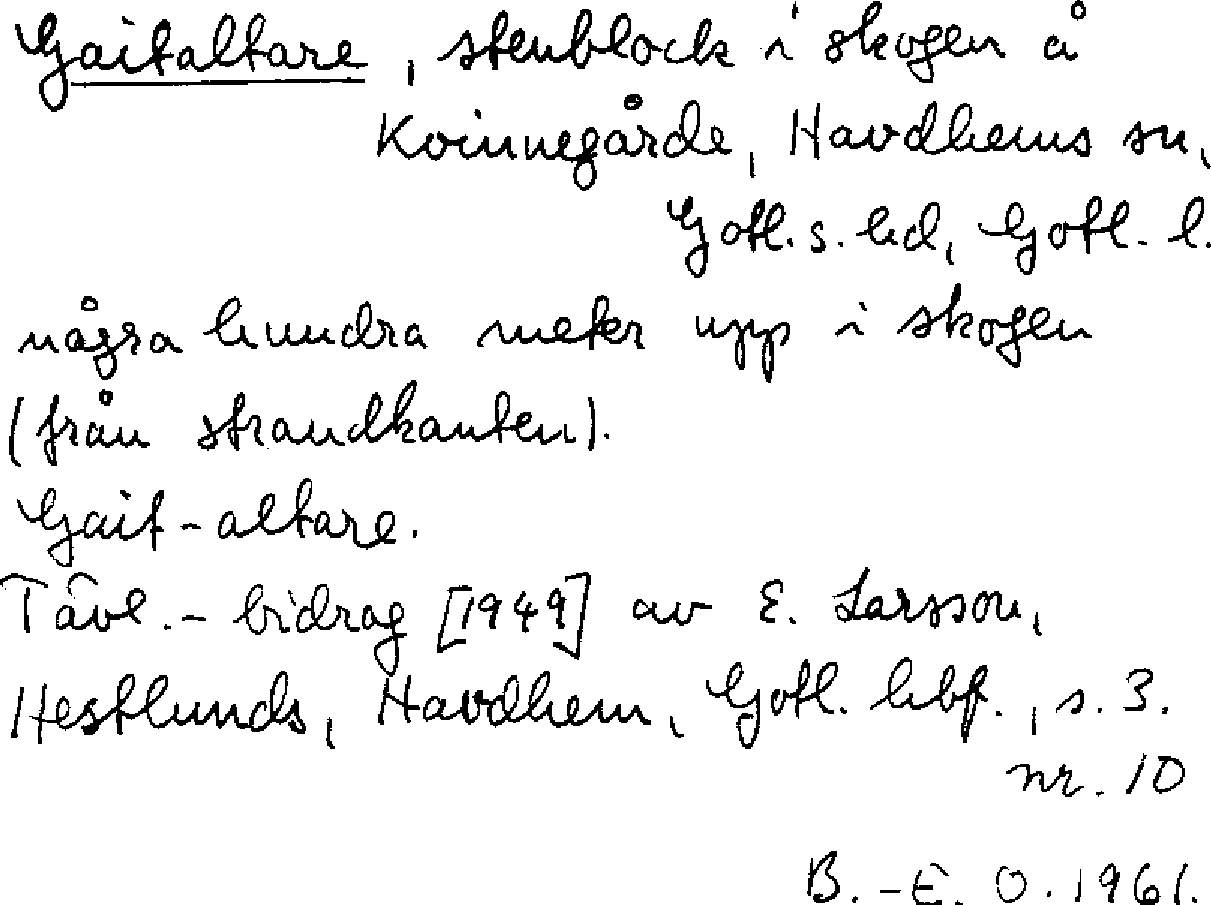 Gaitaltare, stenblock i skogen å
Koinnegårde, Havdhems sn,
Gotl. s. hd, Gotl. l.
några hundra meter upp i skogen
(från strandkanten).
Gait-altare.
Tävl.-bidrag [1949] av E. Larsson,
Hestlunds, Havdhem, Gotl. hbf., s. 3.
nr. 10
B.-E. O. 1961.